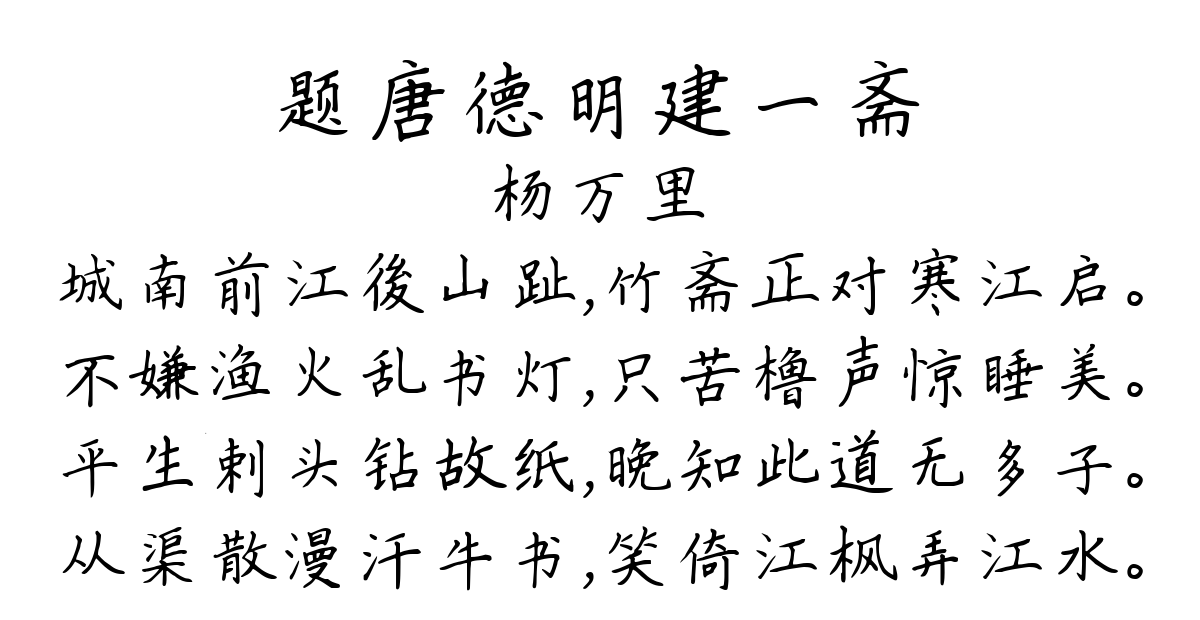 题唐德明建一斋
杨万里
城南前江後山趾,竹斋正对寒江启。
不嫌渔火乱书灯,只苦橹声惊睡美。
平生刺头钻故纸,晚知此道无多子。
从渠散漫汗牛书,笑倚江枫弄江水。